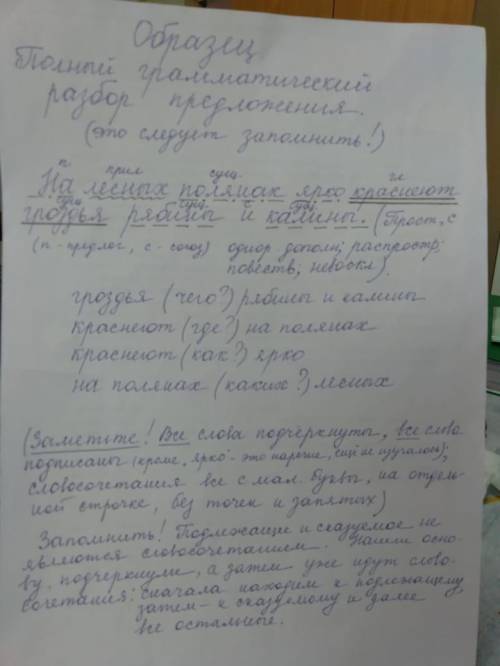 Образец
Полный грамматический
разбор предложения.
(это следует запомнить!)
п. прил сущ. гл
На лесных полянах ярко краснеют
сущ сущ. с сущ.
гроздья рябины и калины. (Прост, с
(п - предлог, с - союз) однор дополн; распростр;
повеств; невоскл).
гроздья (чего?) рябины и калины
краснеют (где?) на полянах
краснеют (как?) ярко
на полянах (каких?) лесных
(Заметьте! Все слова подчёркнуты, все слова
подписаны (кроме „ярко"- это наречие, ещё не изучалось);
словосочетания все с мал. буквы, на отдель-
ной строчке, без точек и запятых)
Запомнить! Подлежащие и сказуемое не
являются словосочетанием. Нашли осно-
ву, подчеркнули, а затем уже идут слово-
сочетания: сначала находим к подлежащему,
затем - к сказуемому и далее
все остальные.